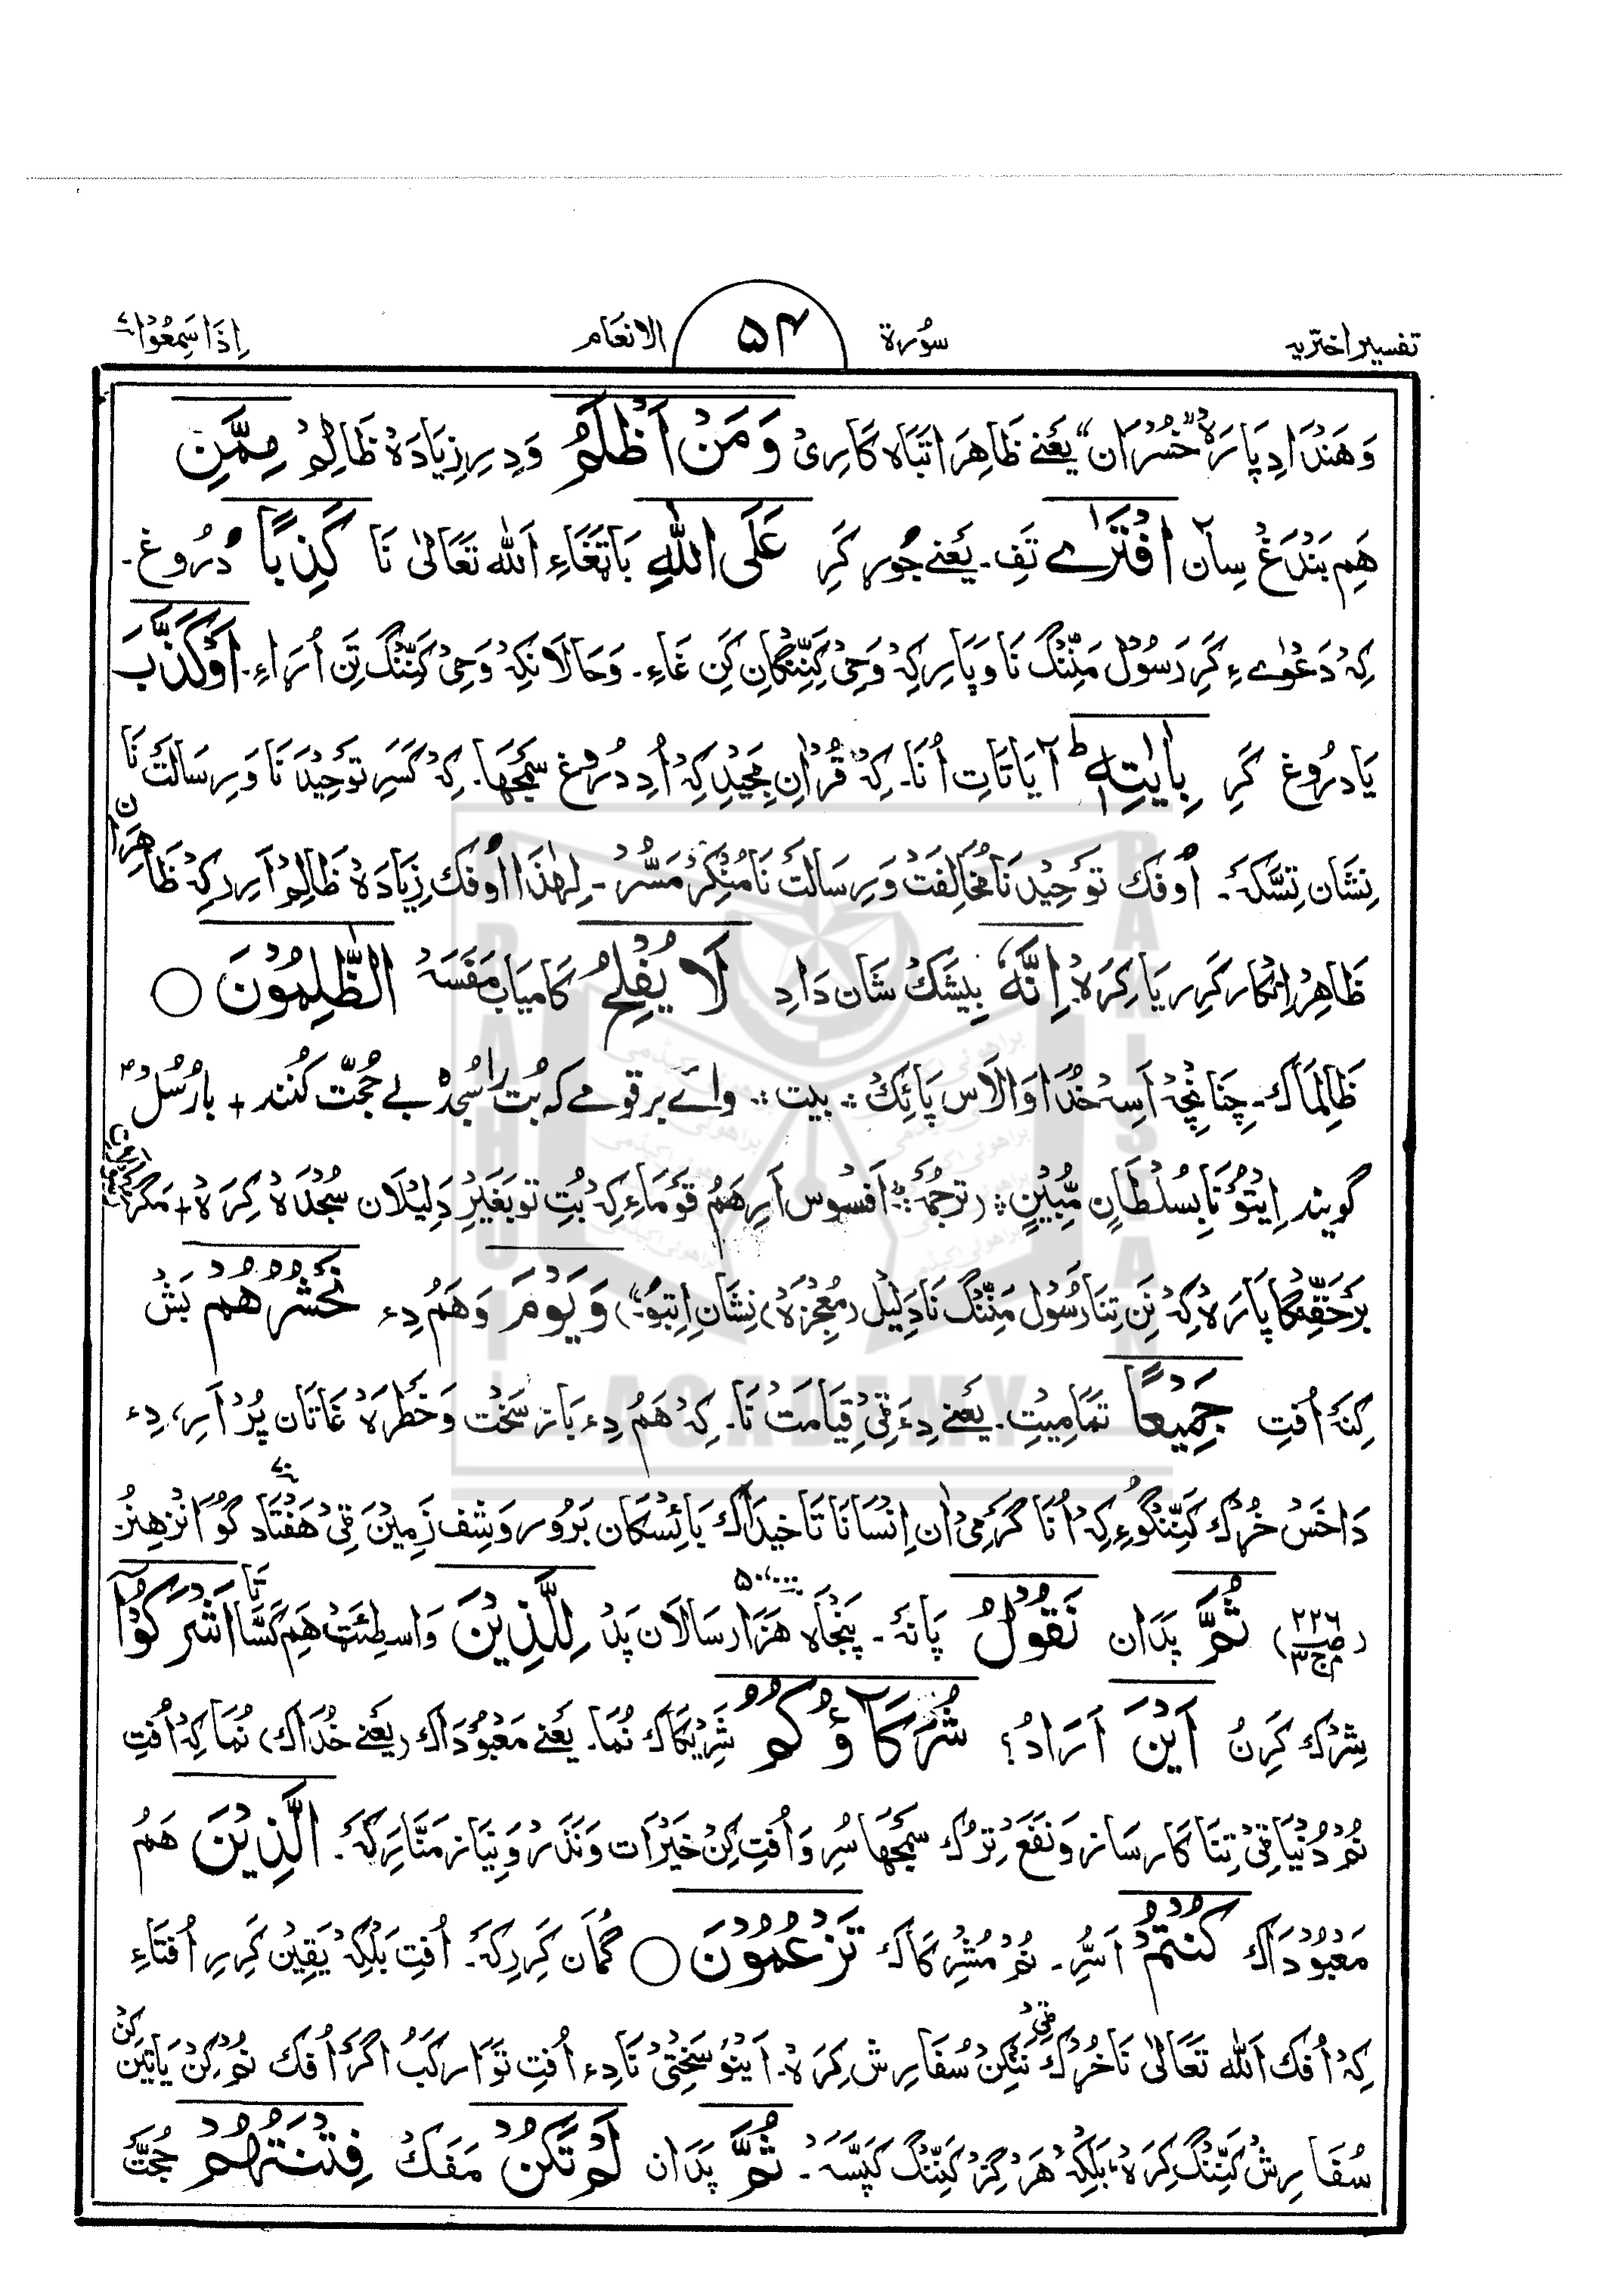 تفسیر اختریہ سُورۃ ۵۴ الانعَام اِذَا سَمِعُوْا ۷
وَهَندَادِ پَارَہْ "خُسْرَان" یَعْنے ظَاهِرَا تَبَاہ کَارِیْ وَمَنْ اَظْلَمُ وَدِیر زِیَادَہْ ظَالِمْ مِمَّنِ
هَمِ بَنْدَغْ سِآن افْتَرٰے تَفِ۔ یَعْنے جُوْر کَرِ عَلَی اللّٰہِ بَاتَغَاءِ اَللّٰہ تَعَالٰی نَا کَذِبًا دُرُوغ۔
کِہ دَعْوٰے ءِ کَرِ رَسُوْل مَنِنْگ نَا وَ پَارِ کِہ وَحِیْ کَنِنْگانِ کَنِ غَاءِ۔ وَحَالَانکِہ وَحِیْ کَنِنْگ تَن اُرَاءِ۔ اَوْکَذَّبَ
یَا دُرُوغ کَرِ بِاٰیٰتِہٖ ط آیَاتَاتِ اُنَا۔ کِہ قُرْاٰنِ مَجِیْدِ کِہ اُدِ دُرُوغ سَمْجھَا۔ کِہ کَسَرِ تَوْحِیْدَ نَا وَ رِسَالَتْ نَا
نِشَان تِسَّکَہْ۔ اُوفَک تَوْحِیْدَ نَا مُخَالِفَت وَ رِسَالَتْ نَا مُنْکِرْ مَسُّرْ۔ لِہٰذَا اُوفَک زِیَادَہْ ظَالِمْ اَرِر کِہ ظَاهِرَان
ظَاهِرْ اِنْکَار کَرِر یَا کِرَہْ۔ اِنَّہٗ بِیْشَکْ شَان دَادِ لَا یُفْلِحُ کَامیَاب مَفَسَہْ الظّٰلِمُوْنَ ○
ظَالِمَاک۔ چُنَانْچِہ اَسِہ خُدَا وَالَاس پَائِکْ ∴ بیت ∴ وائے بر قومے کہ بُت را سُجدہ بے حُجّت کُنند + بارُسُل
گویند اِیْتُوْنَا بِسُلْطَانٍ مُّبِیْنٍ ∴ (ترجمہ ∴ اَفْسُوس اَرِ هَمُ قَوْمَاءِ کِہ بُتِ تَو بَغَیْرِ دَلِیْلَان سُجْدَہْ کِرَہْ + مَگر
بَرْحَقِّکَا پَارَہْ کِہ نَن تِنَا رَسُوْل مَنِنْگ نَا دَلِیْل (مُعْجِزَہْ) نِشَان اِتِبُو") وَیَوْمَ وَهَمُ دِء نَحْشُرُهُمْ بَش
کِنَہ اُفتِ جَمِیْعًا تَمَامِیتِ۔ یَعْنے دِءَ ٹِیْ قِیَامَتْ نَا۔ کِہ هَمُ دِء بَاز سَخْت وَ خَطْرَہْ غَاتَان پُرْ اَرِ، دِء
دَاخَسْ خُرُک کَنِنْگوُءِ کِہ اُنَا گَرْمِیْ اٰن اِنْسَانَا تَا خِیْدَاک بَائِسْکَان بَرُور وَ شِف زَمِیْن ٹِیْ هَفْتَاد گَوَانْزهِنْر
(صـ ۲۲۶ م ج ۳) ثُمَّ پَدَان نَقُوْلُ پَانَہْ۔ پَنْجَاہ هَزَار سَالَان پَدْ ۵۰۰۰۰ لِلَّذِیْنَ وَاسطِئَتْ هَم کَسَّاتَا اَشْرَکُوْٓا
شِرْک کَرِنُ اَیْنَ اَرَادُ؟ شُرَکَآؤُکُمُ شَرِیْکَاک نُمَا۔ یَعْنے مَعْبُوْدَاک (یَعْنے خُدَاک) نُمَا کِہ اُفتِ
نُمْ دُنْیَا ٹِیْ تِنَا کَار سَاز وَ نَفَعْ تِرُک سَمْجھَا سُرِ وَ اُفتِ کِنْ خَیْرَات وَ نَذْر وَ نِیَاز مَنَّارِکَہْ۔ الَّذِیْنَ هَمُ
مَعْبُوْدَاک کُنْتُمْ اَسُّرِ۔ نُمْ مُشْرِکَاک تَزْعُمُوْنَ ○ گُمَان کَرِرِکَہْ۔ اُفتِ بَلْکِہ یَقِیْن کَرِرِ اُفتَاءِ
کِہ اُفک اَللّٰہ تَعَالٰی نَا خُرُک ٹِیْ نَنکِنْ سُفَارِش کِرَہْ۔ اَیْنُوْ سَخْتِیْ نَا دِء اُفتِ تَوَار کَبُ اَگر اُفک نُمْ کِنْ یَا تِیَن کِنْ
سُفَارِشْ کَنِنْگ کِرَہْ، بَلْکِہْ هَرْ گِزْ کَنِنْگ کَپَسَہْ۔ ثُمَّ پَدَان لَمْ تَکُنْ مَفَکْ فِتْنَتُهُمْ حُجَّتْ